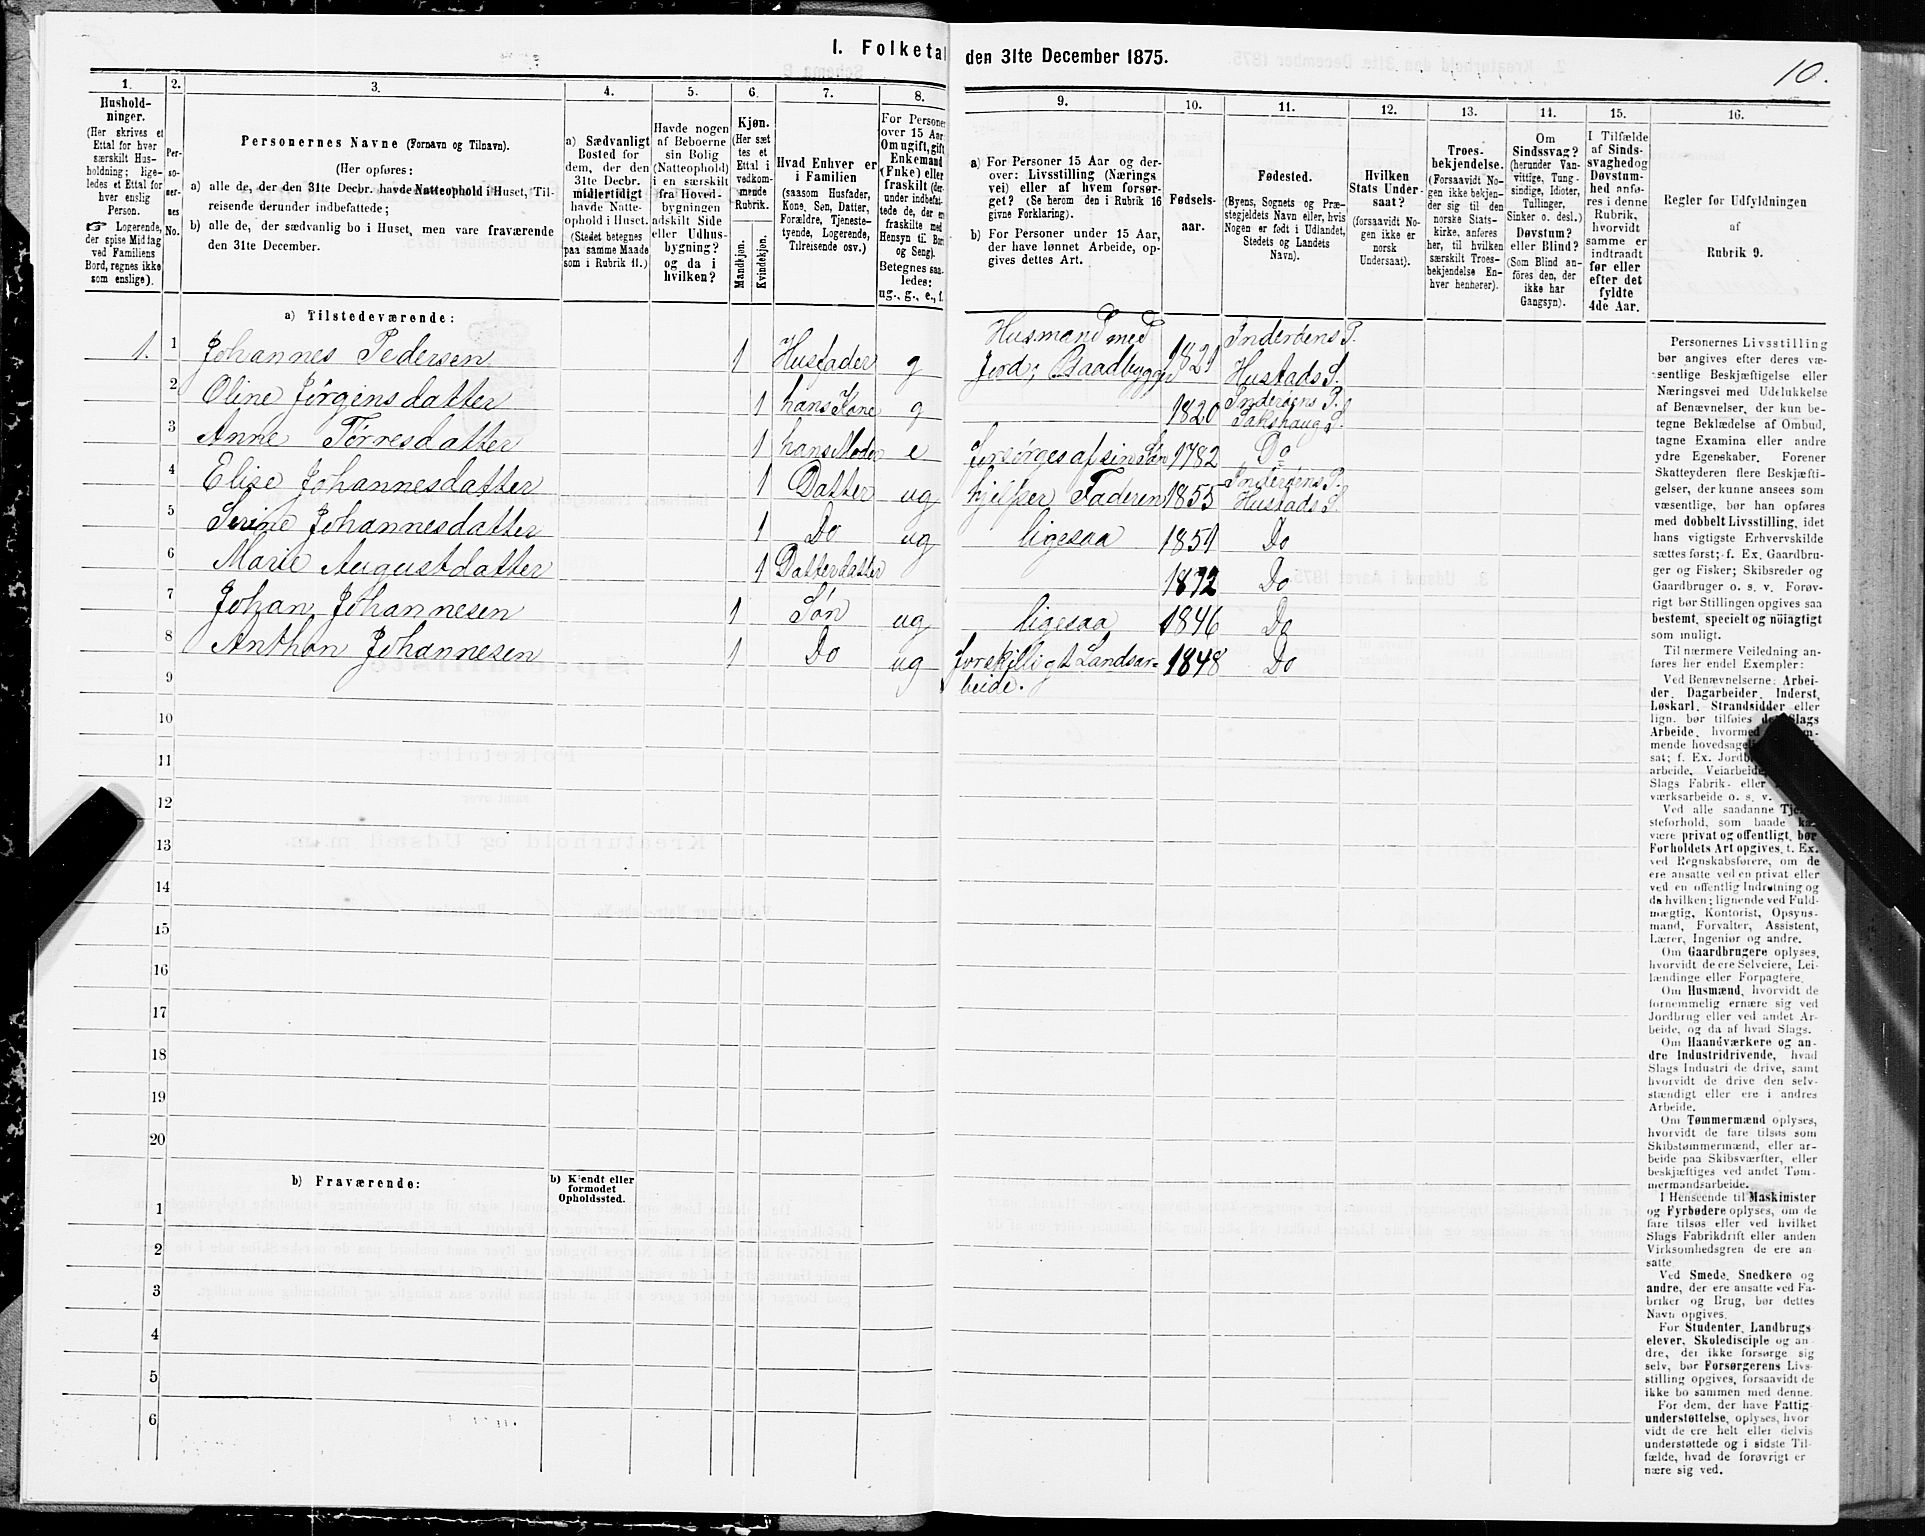 I. Folketal den 31te December 1875.
10.
1.
Husholdninger.
(Her skrives et Ettal for hver særskilt Husholdning; ligeledes et Ettal for hver enslig Person.
☞ Logerende, der spise Middag ved Familiens Bord, regnes ikke som enslige).
2.
Personernes No.
3.
Personernes Navne (Fornavn og Tilnavn).
(Her opføres:
a) alle de, der den 31te Decbr. havde Natteophold i Huset, Tilreisende derunder indbefattede;
b) alle de, der sædvanlig bo i Huset, men vare fraværende den 31te December.
4.
a) Sædvanligt Bosted for dem, der den 31te Decbr. midlertidigt havde Natteophold i Huset. (Stedet betegnes paa samme Maade som i Rubrik 11.)
5.
Havde nogen af Beboerne sin Bolig (Natteophold) i en særskilt fra Hovedbygningen adskilt Side eller Udhusbygning? og da i hvilken?
6.
Kjøn.
(Her sættes et Ettal i vedkommende Rubrik.
Mandkjøn.
Kvindekjøn.
7.
Hvad Enhver er i Familien
(saasom Husfader, Kone, Søn, Datter, Forældre, Tjenestetyende, Logerende, Tilreisende osv.)
8.
For Personer over 15 Aar: Om ugift, gift, Enkemand (Enke) eller fraskilt (derunder indbefattede de, der ere fraskilte med Hensyn til Bord og Seng).
Betegnes saaledes: ug., g., e., f.
9.
a) For Personer 15 Aar og derover: Livsstilling (Nærings vei) eller af hvem forsørget? (Se herom den i Rubrik 16 givne Forklaring).
b) For Personer under 15 Aar, der have lønnet Arbeide, opgives dettes Art.
10.
Fødselsaar.
11.
Fødested.
(Byens, Sognets og Præstegjeldets Navn eller, hvis Nogen er født i Udlandet, Stedets og Landets Navn).
12.
Hvilken Stats Undersaat?
(forsaavidt Nogen ikke er norsk Undersaat).
13.
Troesbekjendelse.
(Forsaavidt Nogen ikke bekjender sig til den norske Statskirke, anføres her, til hvilken særskilt Troesbekjendelse Enhver henhører).
14.
Om Sindssvag? (herunder Vanvittige, Tungsindige, Idioter, Tullinger, Sinker o. desl.) Døvstum? eller Blind? (Som Blind anføres den, der ikke har Gangsyn).
15.
I Tilfælde af Sindssvaghed og Døvstumhed anføres i denne Rubrik, hvorvidt samme er indtraadt før eller efter det fyldte 4de Aar.
16.
Regler for Udfyldningen af Rubrik 9.
a) Tilstedeværende:
1. 1 Johannes Pedersen 1 Husfader g Husmand med Jord; Baadbygger 1821 Inderøens P. Hustads S.
2 Oline Jørgensdatter 1 hans Kone g 1820 Inderøens P. Sakshaug S.
3 Anne Tørresdatter 1 hans Moder e forsørges af sin Søn 1782 Do
4 Elise Johannesdatter 1 Datter ug hjelper Faderen 1855 Inderøens P. Hustads S.
5 Serine Johannesdatter 1 Do ug ligesaa 1851 Do
6 Marie Augustdatter 1 Datterdatter 1872 Do
7 Johan Johannesen 1 Søn ug ligesaa 1846 Do
8 Anthon Johannesen 1 Do ug forskjelligt Landsarbeide. 1848 Do
9
10
11
12
13
14
15
16
17
18
19
20
b) Fraværende:
b) Kjendt eller formodet Opholdssted.
1
2
3
4
5
6
Personernes Livsstilling
bør angives efter deres væsentlige Beskjæftigelse eller
Næringsvei med Udelukkelse
af Benævnelser, der kun betegne Beklædelse af Ombud,
tagne Examina eller andre
ydre Egenskaber. Forener
Skatteyderen flere Beskjæftigelser, der kunne ansees som
væsentlige, bør han opføres
med dobbelt Livsstilling, idet
hans vigtigste Erhvervskilde
sættes først; f. Ex. Gaardbruger og Fisker; Skibsreder og
Gaardbruger o. s. v. Forøvrigt bør Stillingen opgives saa
bestemt, specielt og nöiagtigt
som muligt.
Til nærmere Veiledning anføres her endel Exempler:
Ved Benævnelserne: Arbeider, Dagarbeider, Inderst,
Løskarl, Strandsidder eller
lign. bør tilføies det Slags
Arbeide, hvormed
mende hovedsageli
sat; f. Ex. Jordb
arbeide, Veiarbeide
Slags Fabrik- eller
værksarbeide o. s. v.
Ved alle saadanne Tjenesteforhold, som baade kan
være privat og offentligt, bør
Forholdets Art opgives, f. Ex.
ved Regnskabsførere, om de
ere ansatte ved en privat eller
ved en offentlig Indretning og
da hvilken; lignende ved Fuldmægtig, Kontorist, Opsynsmand, Forvalter, Assistent,
Lærer, Ingeniør og andre.
Om Gaardbrugere oplyses,
hvorvidt de ere Selveiere, Leilændinge eller Forpagtere.
Om Husmænd, hvorvidt de
fornemmelig ernære sig ved
Jordbrug eller ved andet Arbeide, og da af hvad Slags.
Om Haandværkere og andre Industridrivende, hvad
Slags Industri de drive, samt
hvorvidt de drive den selvstændigt eller ere i andres
Arbeide.
Om Tømmermænd oplyses,
hvorvidt de fare tilsøs som
Skibstømmermænd, eller arbeide paa Skibsværfter, eller
beskjæftiges ved andet Tømmermandsarbeide.
I Henseende til Maskinister
og Fyrbødere oplyses, om de
fare tilsøs eller ved hvilket
Slags Fabrikdrift eller anden
Virksomhedsgren de ere ansatte.
Ved Smede, Snedkere og
andre, der ere ansatte ved Fabriker og Brug, bør dettes
Navn opgives.
For Studenter, Landbrugselever, Skoledisciple og andre, der ikke forsørge sig
selv, bør Forsørgerens Livsstilling opgives, forsaavidt de
ikke bo sammen med denne.
For dem, der have Fattigunderstøttelse, oplyses, hvorvidt de ere helt eller delvis
understøttede og i sidste Tilfælde, hvad de forøvrigt ernære sig ved.